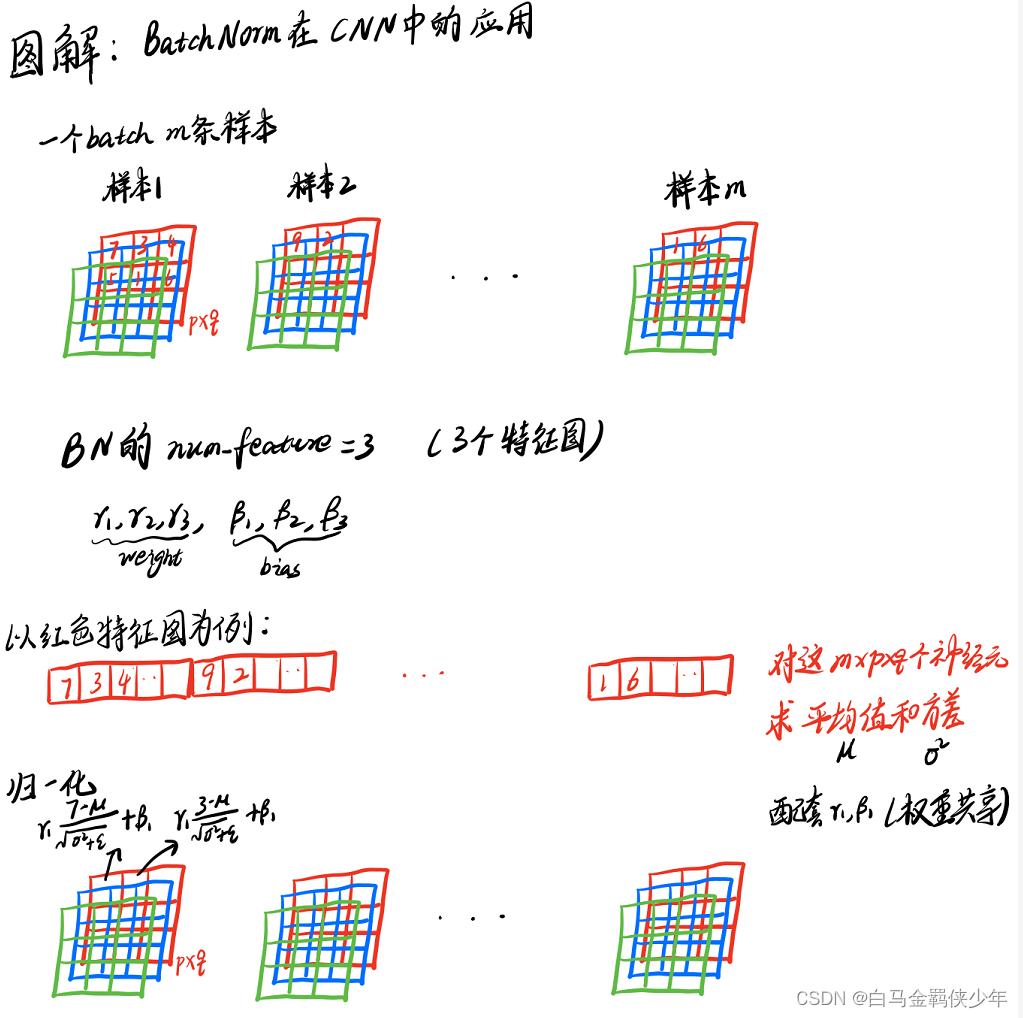 图解：BatchNorm在CNN中的应用
一个batch m条样本
样本1 样本2 样本m
7 3 4 9 2 1 6
5 1 6
p×q
· · ·
BN的 num-feature=3 （3个特征图）
γ1,γ2,γ3, β1,β2,β3
weight bias
以红色特征图为例：
7 3 4 ·· 9 2 ·· · · · 1 6 ··
对这m×p×q个神经元
求平均值和方差
μ σ²
配套γ1,β1（权重共享）
归一化
γ1 (7-μ)/√(σ²+ε) +β1 γ1 (3-μ)/√(σ²+ε) +β1
· · ·
p×q
CSDN @白马金羁侠少年